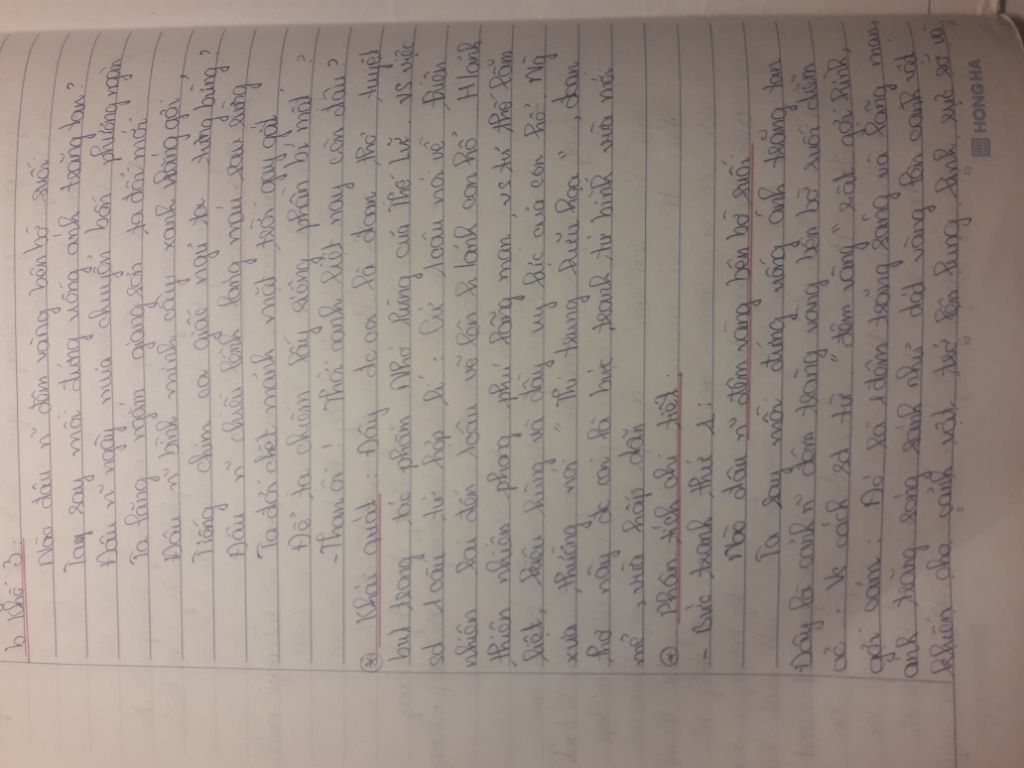 b, Khổ 3
Nào đâu ~ đêm vàng bên bờ suối
Ta say mồi đứng uống ánh trăng tan?
Đâu ~ ngày mưa chuyển bốn phương ngàn
Ta lặng ngắm giang sơn ta đổi mới
Đâu ~ bình minh cây xanh nắng gội,
Tiếng chim ca giấc ngủ ta tưng bừng?
Đâu ~ chiều lênh láng máu sau rừng
Ta đợi chết mảnh mặt trời gay gắt
Để ta chiếm lấy riêng phần bí mật?
- Than ôi! Thời oanh liệt nay còn đâu?
* Khái quát: Đây đc coi là đoạn thơ tuyệt
bút trong tác phẩm Nhớ rừng của Thế Lữ. vs việc
sd loạt từ hợp lí: từ loạt nói về thiên
nhiên lại đến loạt về lên h/ảnh con hổ. H/ảnh
thiên nhiên phong phú lãng mạn vs tư thế lẫm
liệt, kiêu hùng và đầy uy lực của con hổ. Ng
xưa thường nói "Thi trung hữu họa", đoạn
thơ này đc coi là bức tranh tứ bình vừa nói
mẻ, vừa hấp dẫn
* Phân tích chi tiết
- Bức tranh thứ 1:
Nào đâu ~ đêm vàng bên bờ suối
Ta say mồi đứng uống ánh trăng tan
Đây là cảnh ~ đêm trăng vàng bên bờ suối diễm
ả. Vs cách sd từ "đêm vàng" rất gợi hình,
gợi cảm. Đó là 1 đêm trăng sáng và bằng màu
ánh trăng sáng sánh như dát vàng lên cảnh vật
khiến cho cảnh vật trở lên lung linh, rực rỡ và
HONGHA